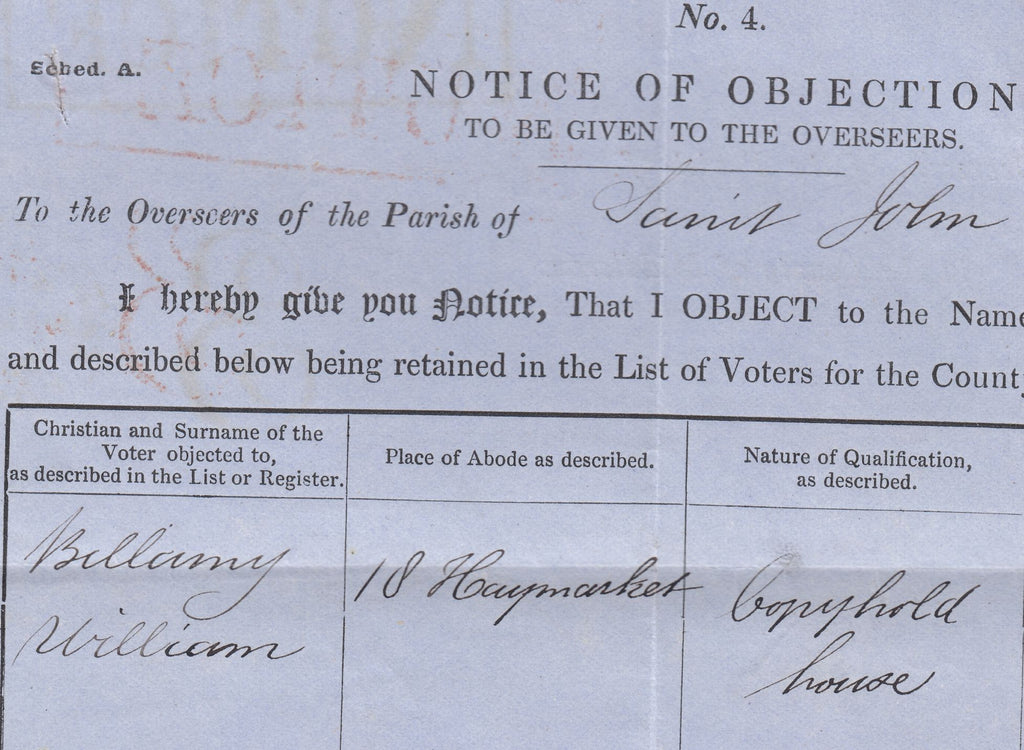 No. 4.
Sched. A.
NOTICE OF OBJECTION
TO BE GIVEN TO THE OVERSEERS.
To the Overseers of the Parish of Saint John
I hereby give you Notice, That I OBJECT to the Name
and described below being retained in the List of Voters for the County
Christian and Surname of the
Voter objected to,
as described in the List or Register.
Place of Abode as described.
Nature of Qualification,
as described.
Bellamy
William
18 Haymarket
Copyhold
house